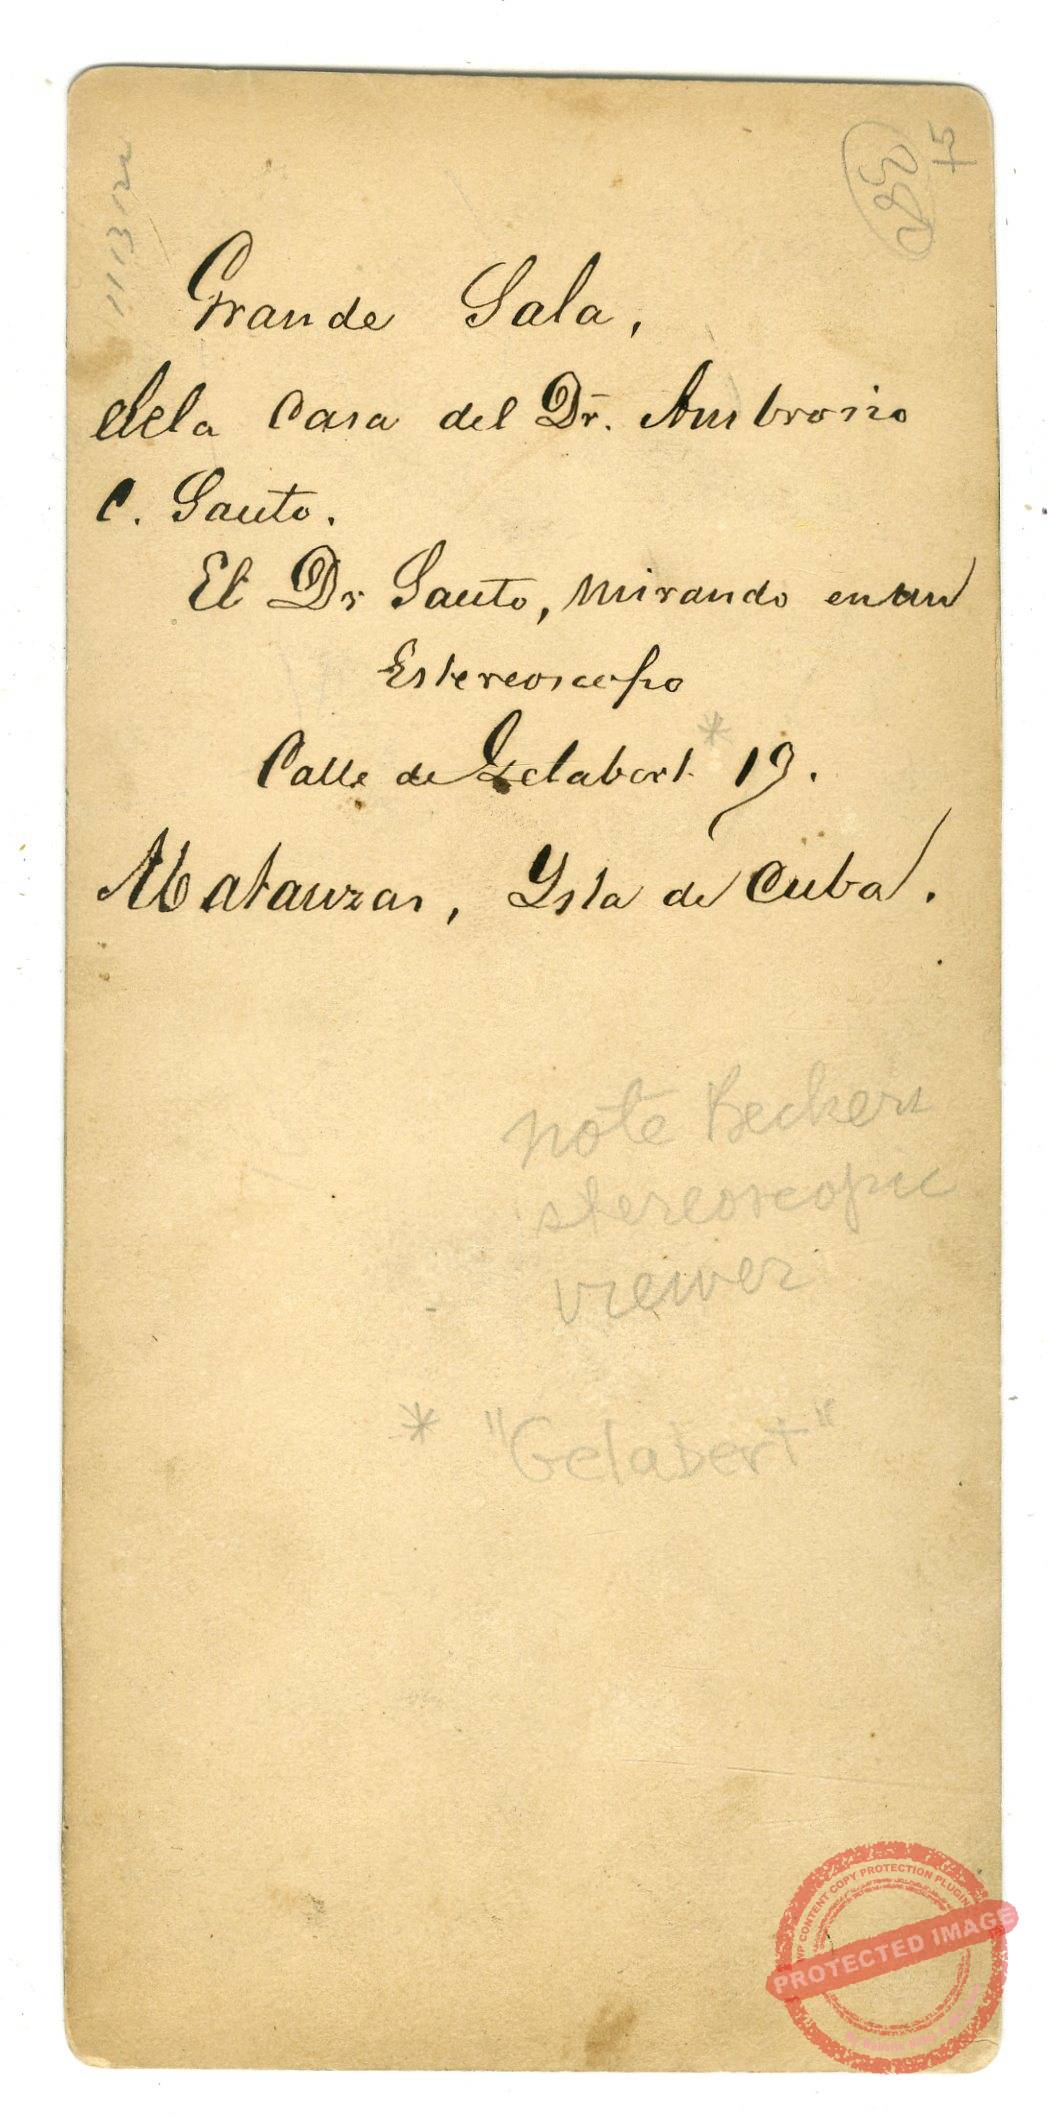 Grande Sala,
dela Casa del Dr. Ambrosio
C. Sauto.
El Dr Sauto, Mirando en un
Estereoscopo
Calle de Gelabert * 19.
Matanzas, Ysla de Cuba.
note Beckers
stereoscopic
viewer
* "Gelabert"
75
PROTECTED IMAGE
WP CONTENT COPY PROTECTION PLUGIN